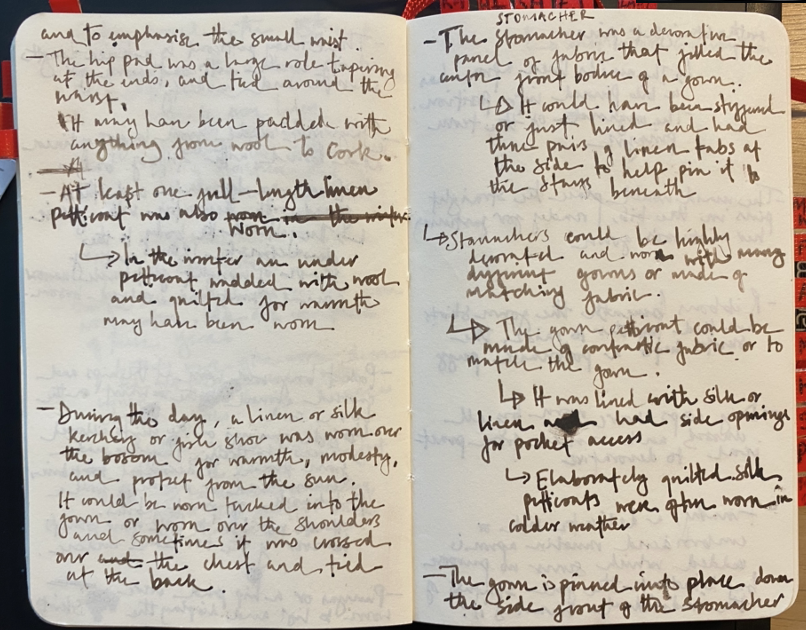 and to emphasise the small waist.
- The hip pad was a large role tapering
at the ends, and tied around the
waist.
It may have been padded with
anything from wool to cork.
- At least one full-length linen
petticoat was also worn in the winter
worn.
↳ In the winter an under
petticoat wadded with wool
and quilted for warmth
may have been worn
- During the day, a linen or silk
kerchief or fichu was worn over
the bosom for warmth, modesty,
and protect from the sun.
It could be worn tucked into the
gown or worn over the shoulders
and sometimes it was crossed
over and the chest and tied
at the back.
STOMACHER
- The stomacher was a decorative
panel of fabric that filled the
centre front bodice of a gown.
↳ It could have been stiffened
or just lined and had
three pairs of linen tabs at
the side to help pin it to
the stays beneath
↳ Stomachers could be highly
decorated and worn with many
different gowns or made of
matching fabric.
↳ The gown petticoat could be
made of contrastic fabric or to
match the gown.
↳ It was lined with silk or
linen and had side openings
for pocket access
↳ Elaborately quilted silk
petticoats were often worn in
colder weather
- The gown is pinned into place down
the side front of the stomacher